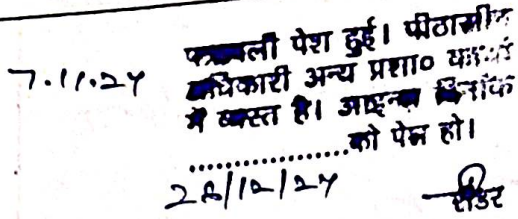 7.11.24 पत्रावली पेश हुई। पीठासीन
अधिकारी अन्य प्रशा० कार्यो
में व्यस्त है। आइन्दा दिनॉक
..................को पेश हो।
28/12/24
रीडर